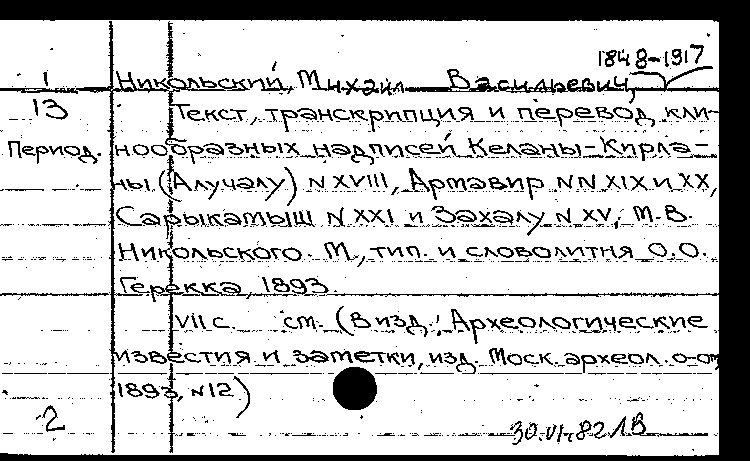 1848-1917
1 Никольский, Михаил Васильевич,
13 Текст, транскрипция и перевод кли-
Период. нообразных надписей Келаны-Кирла-
ны (Алучалу) N XVIII, Армавир NN XIX и XX,
Сарыкамыш N XXI и Захалу N XV, М.В.
Никольского. М., тип. и словолитня О.О.
Герекка, 1893.
VII с. см. (В изд.: Археологические
известия и заметки, изд. Моск. археол. о-от
1893, N12)
2 30.VI-82 ЛВ